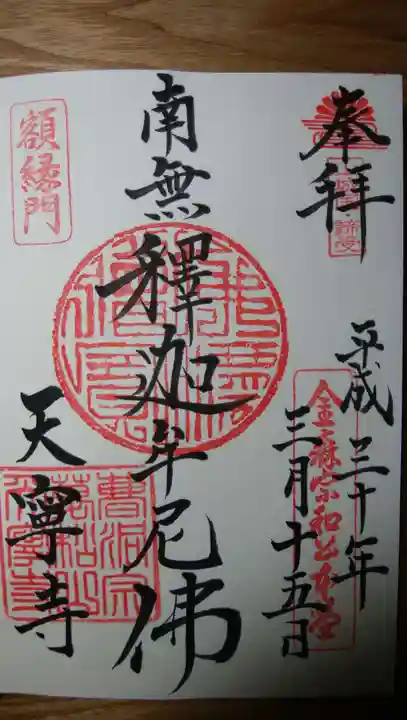 奉拝
平成三十年
三月十五日
金森宗和公本堂
南無釋迦牟尼佛
額縁門
天寧寺